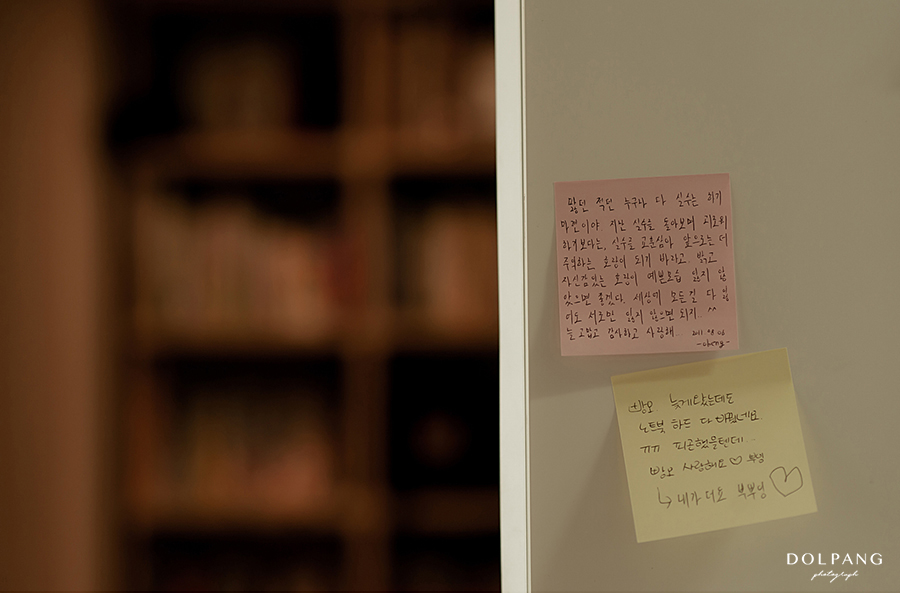 많던 적던 누구나 다 실수는 하기
마련이야. 지난 실수를 돌아보며 괴로워
하기보다는, 실수를 교훈삼아 앞으로는 더
주의하는 호랑이 되기 바라고. 밝고
자신감있는 호랑이 예쁜모습 잃지 않
았으면 좋겠다. 세상에 모든걸 다 잃
어도 서로만 잃지 않으면 되지.. ^^
늘 고맙고 감사하고 사랑해..
빵오 늦게왔는데도
노트북 하드 다 바꿨네요
ㄲㄲ 피곤했을텐데..
빵오 사랑해요♡
↳ 내가 더요 ♡
DOLPANG
photograph